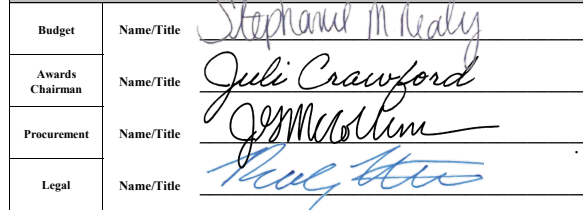 Budget Name/Title Stephanie M Nealy
Awards
Chairman Name/Title Juli Crawford
Procurement Name/Title
Legal Name/Title